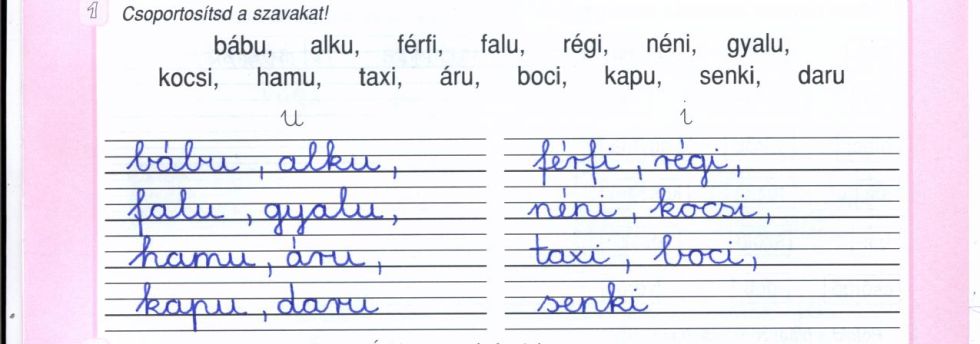 1 Csoportosítsd a szavakat!
bábu, alku, férfi, falu, régi, néni, gyalu,
kocsi, hamu, taxi, áru, boci, kapu, senki, daru
u i
bábu, alku, férfi, régi,
falu, gyalu, néni, kocsi,
hamu, áru, taxi, boci,
kapu, daru senki